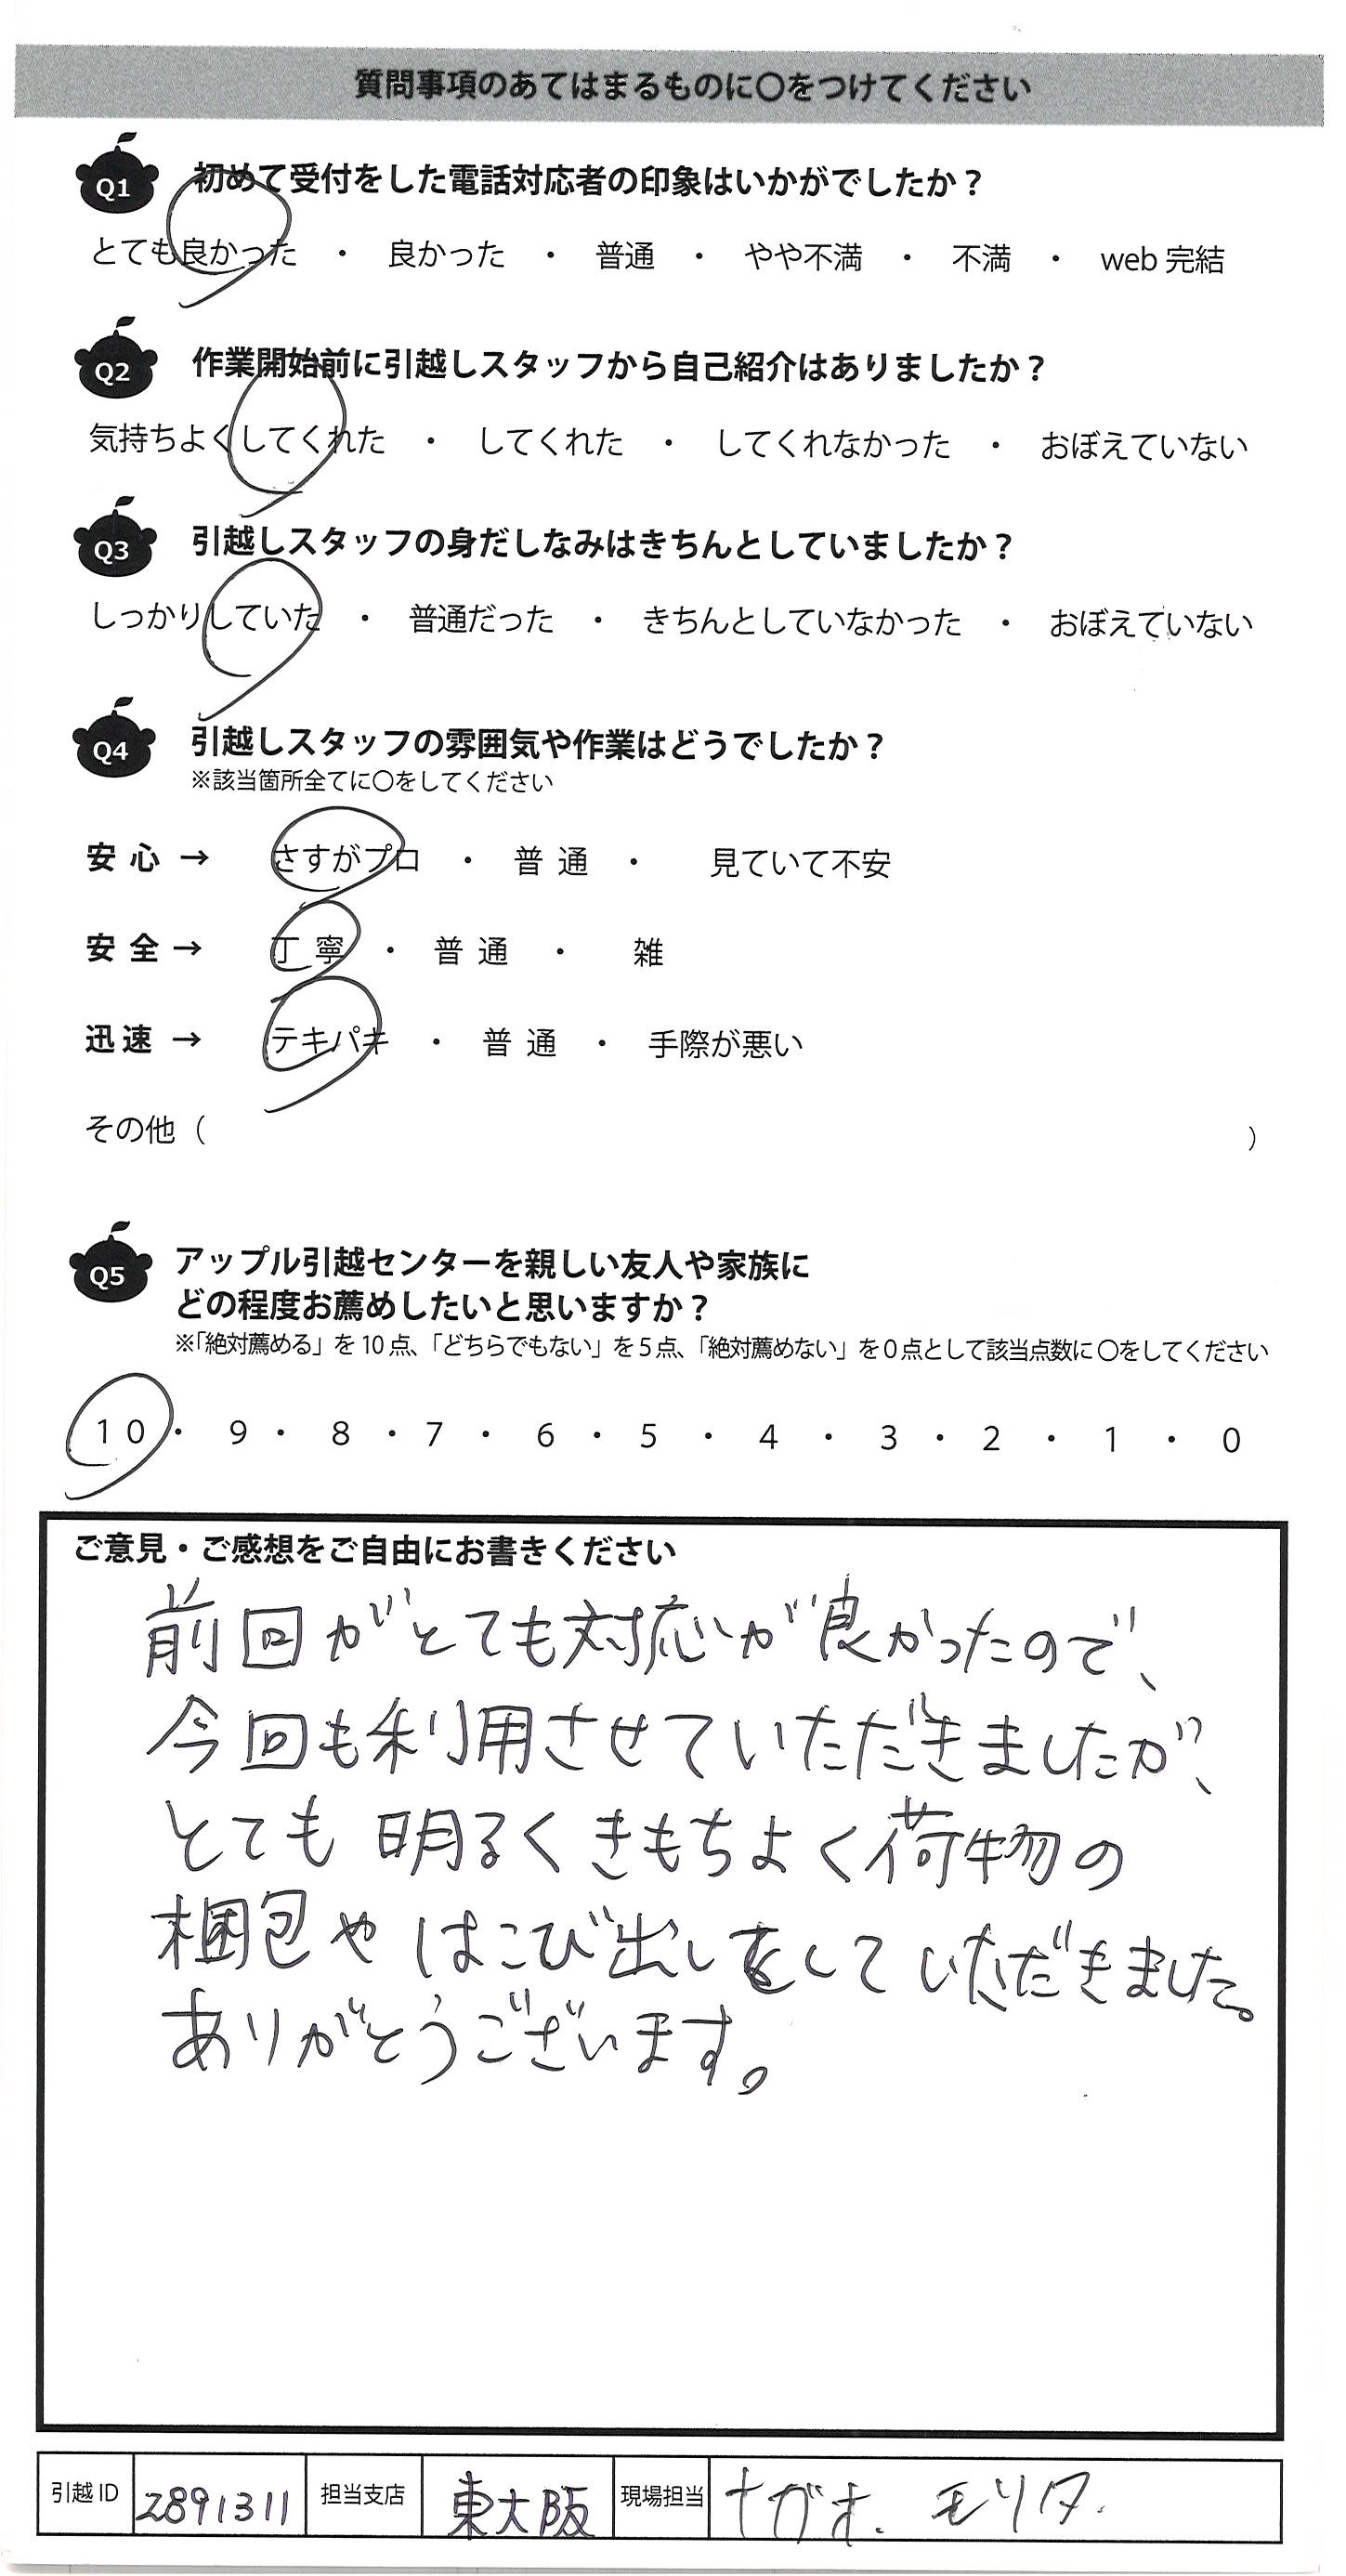 質問事項のあてはまるものに〇をつけてください
Q1 初めて受付をした電話対応者の印象はいかがでしたか？
とても良かった ・ 良かった ・ 普通 ・ やや不満 ・ 不満 ・ web 完結
Q2 作業開始前に引越しスタッフから自己紹介はありましたか？
気持ちよくしてくれた ・ してくれた ・ してくれなかった ・ おぼえていない
Q3 引越しスタッフの身だしなみはきちんとしていましたか？
しっかりしていた ・ 普通だった ・ きちんとしていなかった ・ おぼえていない
Q4 引越しスタッフの雰囲気や作業はどうでしたか？
※該当箇所全てに〇をしてください
安心 → さすがプロ ・ 普通 ・ 見ていて不安
安全 → 丁寧 ・ 普通 ・ 雑
迅速 → テキパキ ・ 普通 ・ 手際が悪い
その他（ ）
Q5 アップル引越センターを親しい友人や家族に
どの程度お薦めしたいと思いますか？
※「絶対薦める」を10点、「どちらでもない」を5点、「絶対薦めない」を0点として該当点数に〇をしてください
10 ・ 9 ・ 8 ・ 7 ・ 6 ・ 5 ・ 4 ・ 3 ・ 2 ・ 1 ・ 0
ご意見・ご感想をご自由にお書きください
前回がとても対応が良かったので、
今回も利用させていただきましたが、
とても明るくきもちよく荷物の
梱包やはこび出しをしていただきました。
ありがとうございます。
引越ID 2891311 担当支店 東大阪 現場担当 ナガオ. モリタ.